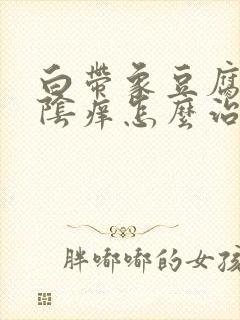 白带象豆腐
阴痒怎么治
胖嘟嘟的女孩